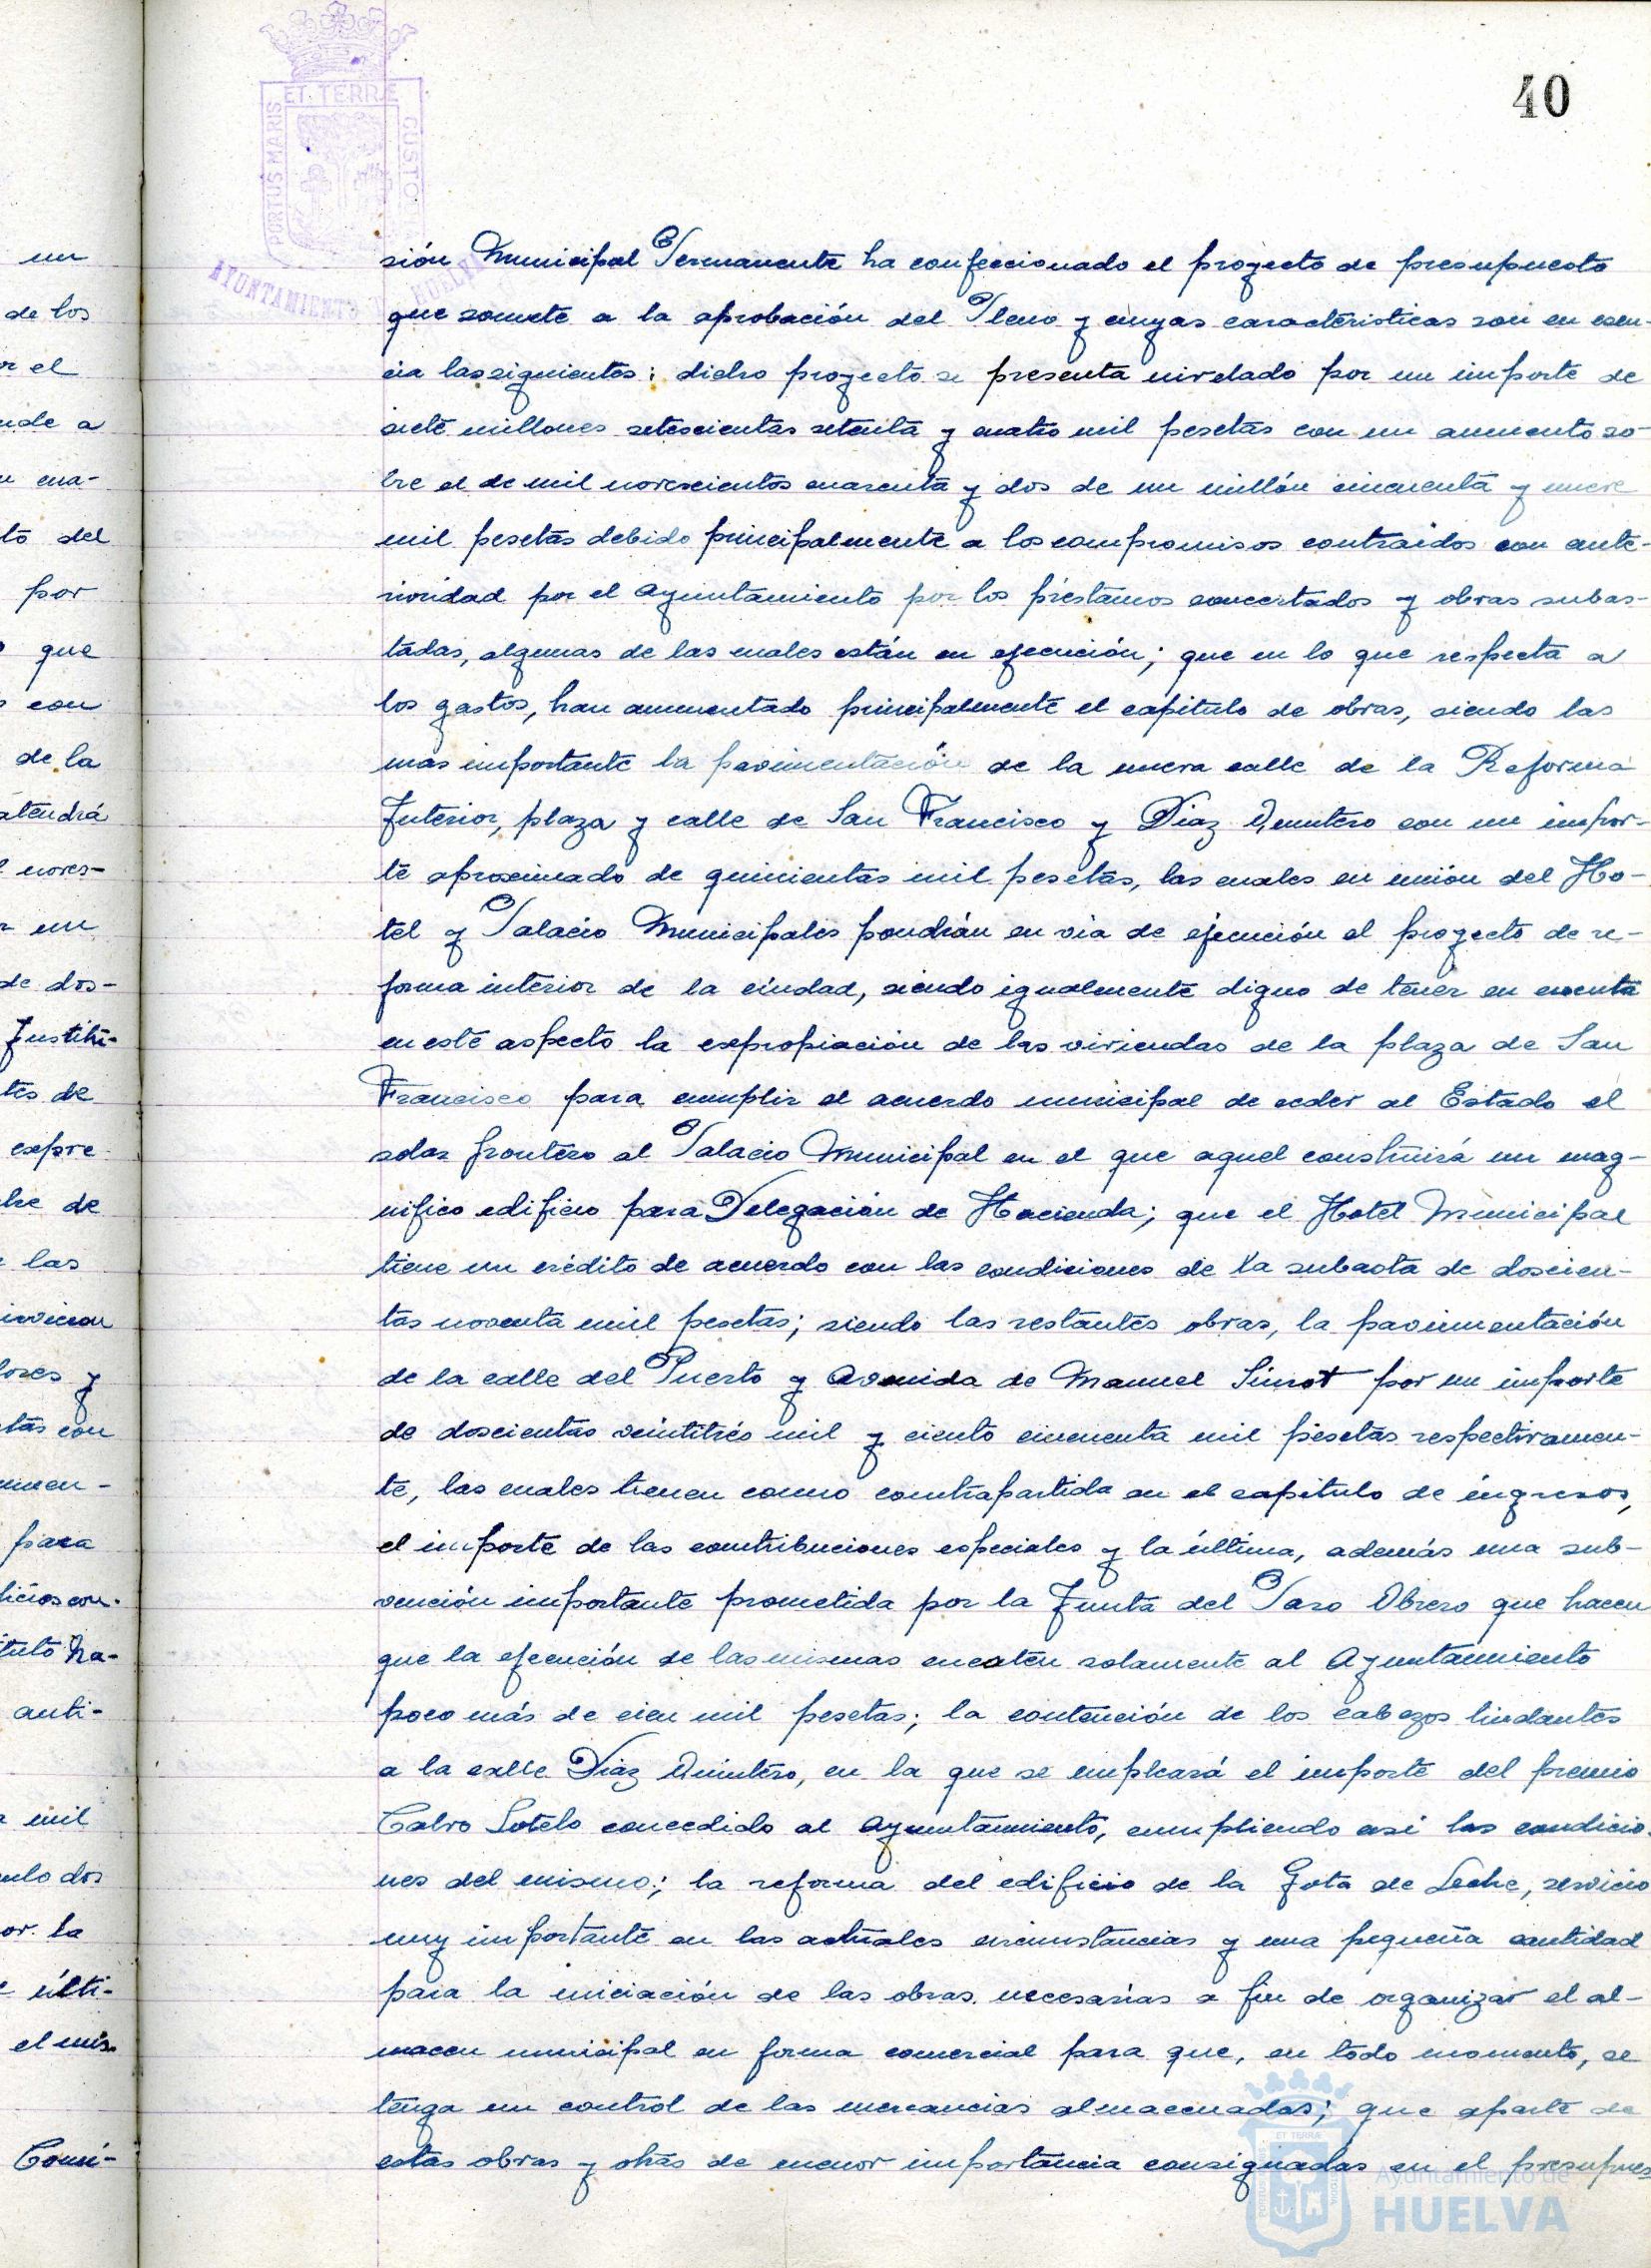 40
PORTUS MARIS ET TERRE CUSTODIA
AYUNTAMIENTO DE HUELVA
sión Municipal Permanente ha confeccionado el proyecto de presupuesto
que somete a la aprobación del Pleno y cuyas caracteristicas son en esen-
cia las siguientes; dicho proyecto se presenta nivelado por un importe de
siete millones setescientas setenta y cuatro mil pesetas con un aumento so-
bre el de mil novescientos cuarenta y dos de un millón cincuenta y nueve
mil pesetas debido principalmente a los compromisos contraidos con ante-
rioridad por el Ayuntamiento por los préstamos concertados y obras subas-
tadas, algunas de las cuales están en ejecución; que en lo que respecta a
los gastos, han aumentado principalmente el capitulo de obras, siendo las
mas importante la pavimentación de la nueva calle de la Reforma
Interior, plaza y calle de San Francisco y Diaz Quintero con un impor-
te aproximado de quinientas mil pesetas, las cuales en unión del Ho-
tel y Palacio Municipales pondrán en via de ejecución el proyecto de re-
forma interior de la ciudad, siendo igualmente digno de tener en cuenta
en este aspecto la expropiación de las viviendas de la plaza de San
Francisco para cumplir el acuerdo municipal de ceder al Estado el
solar frontero al Palacio Municipal en el que aquel construirá un mag-
nifico edificio para Delegación de Hacienda; que el Hotel Municipal
tiene un crédito de acuerdo con las condiciones de la subasta de doscien-
tas noventa mil pesetas; siendo las restantes obras, la pavimentación
de la calle del Puerto y Avenida de Manuel Siurot por un importe
de doscientas veintitrés mil y ciento cincuenta mil pesetas respectivamen-
te, las cuales tienen como contrapartida en el capitulo de ingresos,
el importe de las contribuciones especiales y la última, además una sub-
vención importante prometida por la Junta del Paro Obrero que hacen
que la ejecución de las mismas cuesten solamente al Ayuntamiento
poco más de cien mil pesetas; la contención de los cabezos lindantes
a la calle Diaz Quintero, en la que se empleará el importe del premio
Calvo Sotelo concedido al Ayuntamiento, cumpliendo asi las condicio-
nes del mismo; la reforma del edificio de la Gota de Leche, servicio
muy importante en las actuales circunstancias y una pequeña cantidad
para la iniciación de las obras necesarias a fin de organizar el al-
macen municipal en forma comercial para que, en todo momento, se
tenga un control de las mercancias almacenadas; que aparte de
estas obras y otras de menor importancia consignadas en el presupues
un
de los
or el
nde a
cua-
to del
por
que
con
de la
atendrá
noves-
un
de dos-
Institu-
tes de
expre
de
las
y
tas con
para
ha-
anti-
mil
ulo dos
or la
últi-
el mis-
Comi-
Ayuntamiento de
HUELVA